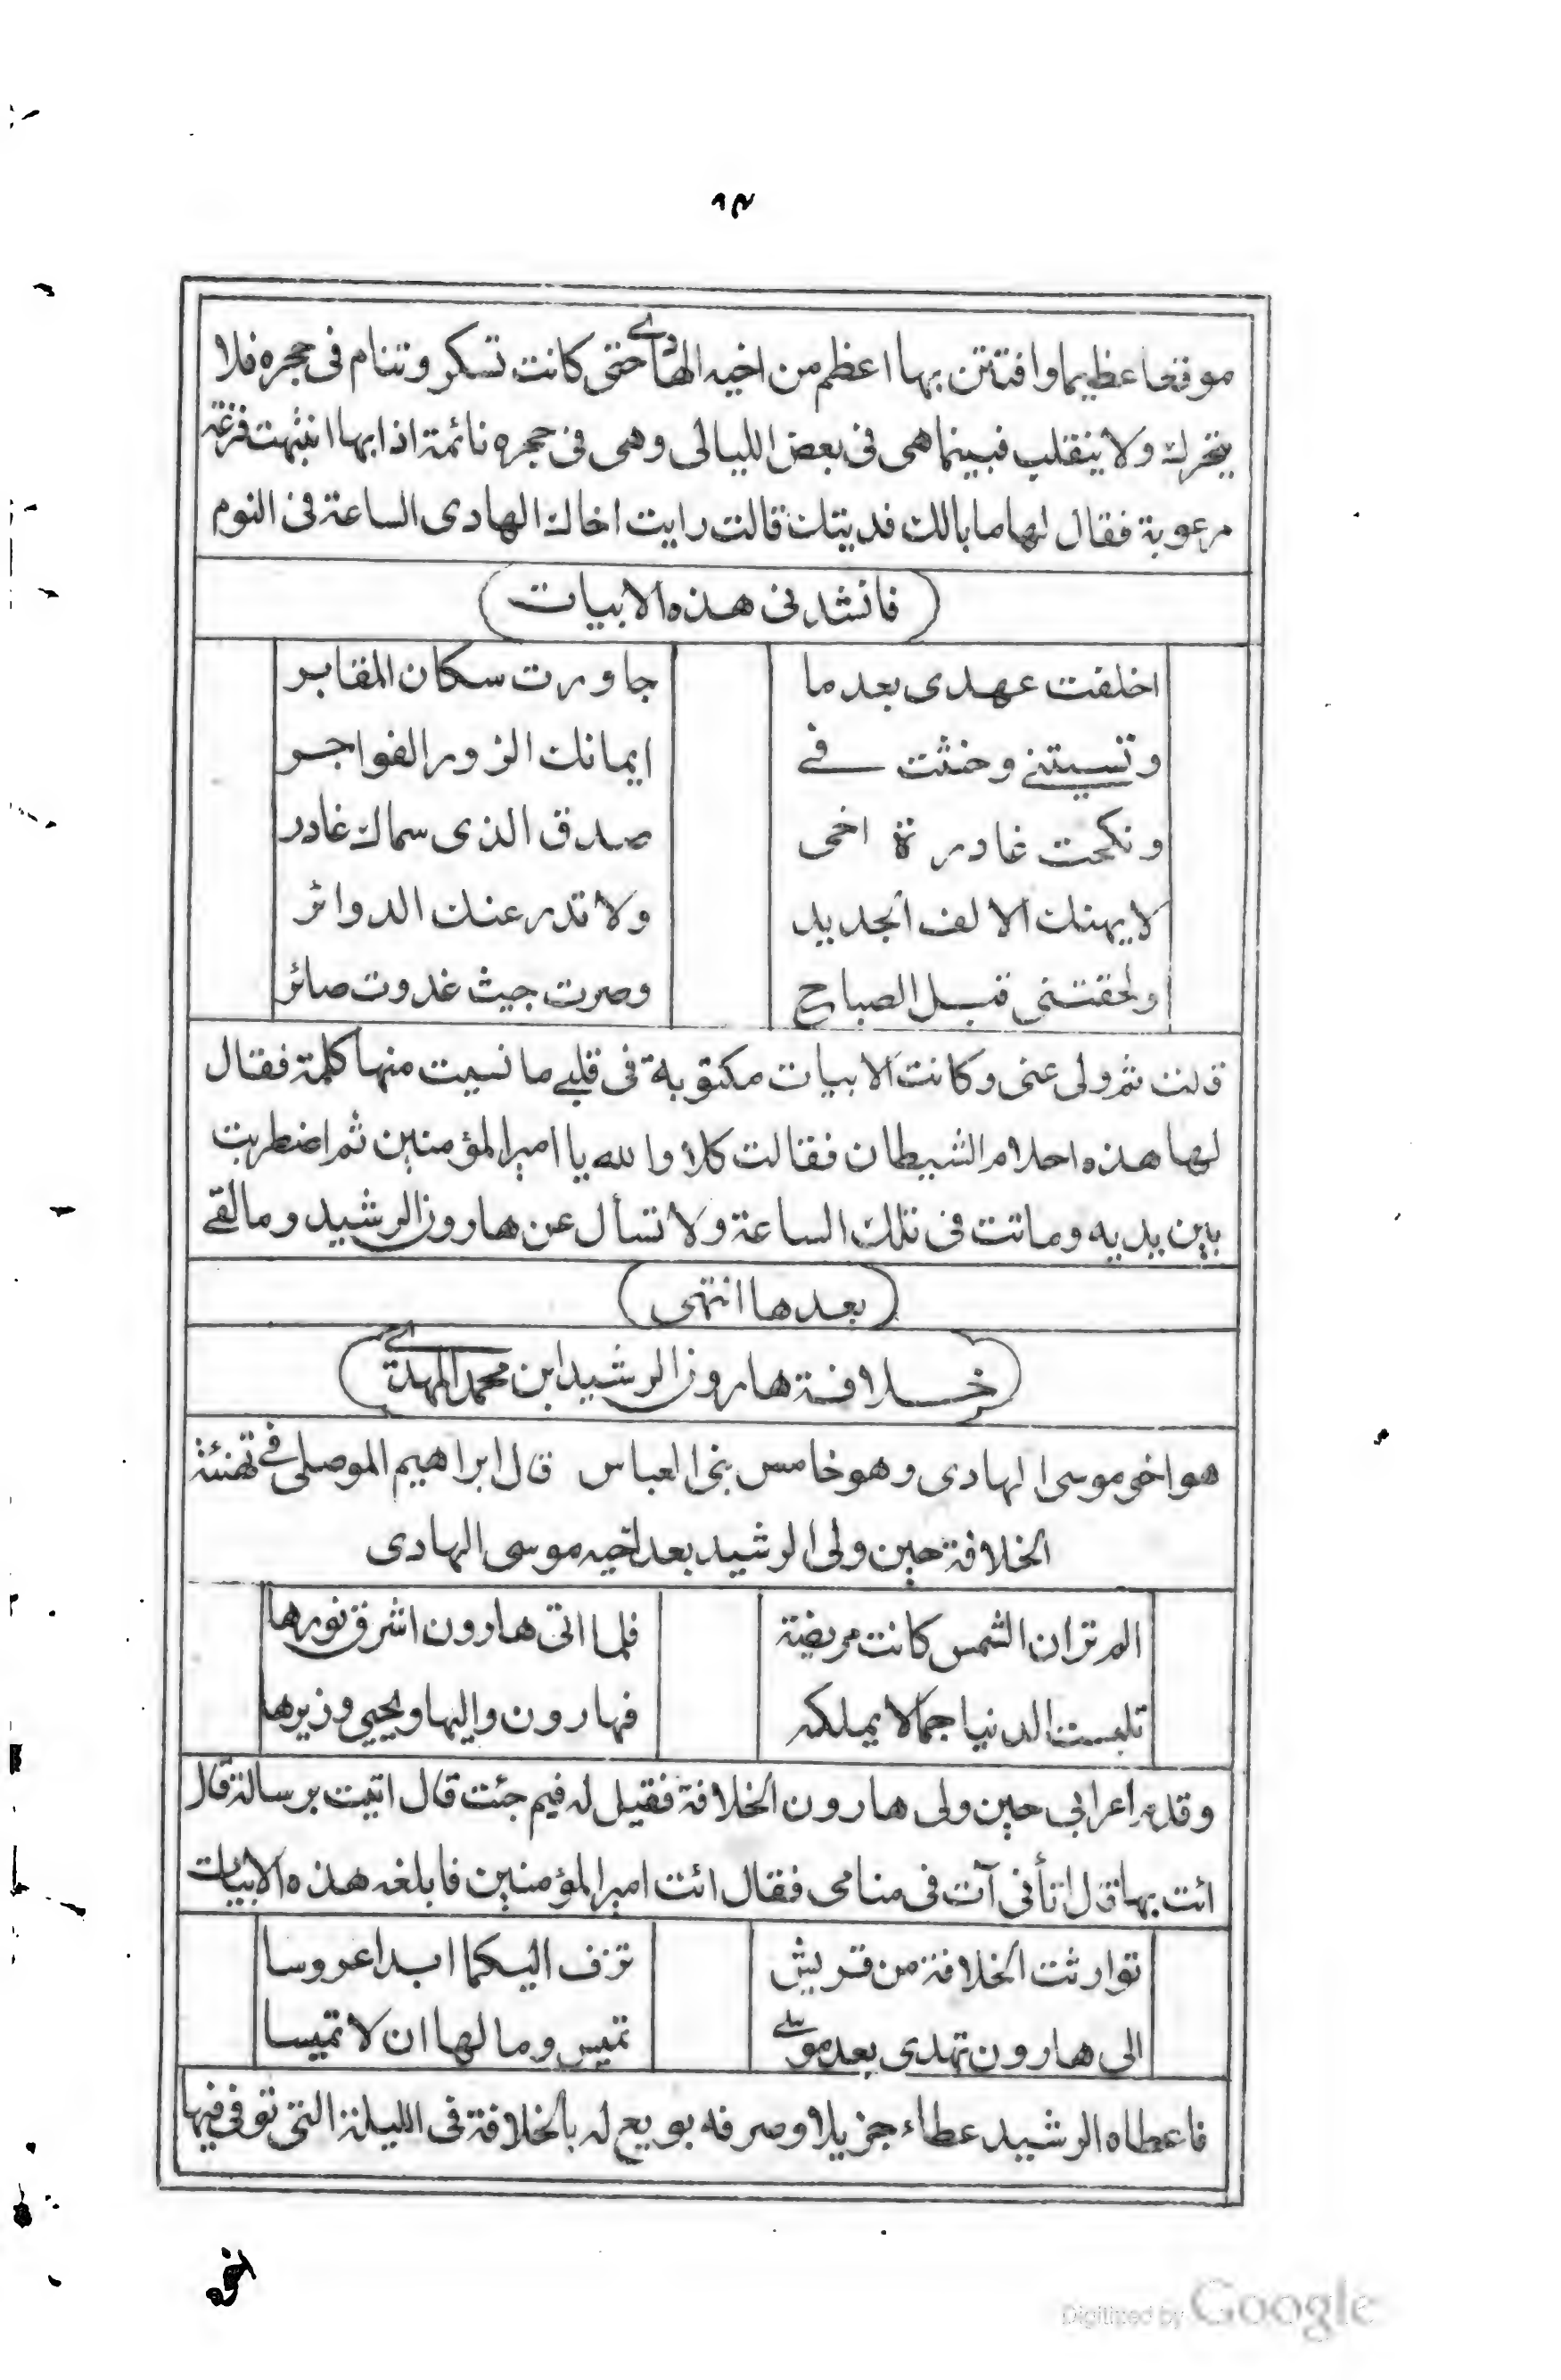 ٩٣
موقعا عظيما وافتتن بها اعظم من اخيه الهادي حتى كانت تسكر وتنام فى حجره فلا
يتحرك ولا ينقلب فبينما هى فى بعض الليالى وهى فى حجره نائمة اذا بها انتبهت فزعة
مرعوبة فقال لها ما بالك فديتك قالت رايت اخاك الهادى الساعة فى النوم
(فانشدنى هذه الابيات)
اخلفت عهدى بعد ما جاورت سكان المقابر
ونسيتنے وحنثت فے ايمانك الزور الفواجر
ونكحت غادرة اخى صدق الذى سماك غادر
لا يهنك الالف الجديد ولا تدر عنك الدوائر
ولحقتنى قبل الصباح وصرت حيث غدوت صائر
قالت ثم ولى عنى وكانت الابيات مكتوبة فى قلبے ما نسيت منها كلمة فقال
لها هذه احلام الشيطان فقالت كلا والله يا امير المؤمنين ثم اضطربت
بين يديه وماتت فى تلك الساعة ولا تسأل عن هارون الرشيد وما لقے
(بعدها انتهى)
(خلافة هارون الرشيد ابن محمد المهدے)
هو اخو موسى الهادى وهو خامس بنى العباس قال ابراهيم الموصلى فے تهنئة
الخلافة حين ولى الرشيد بعد اخيه موسى الهادى
الم تر ان الشمس كانت مريضة فلما اتى هارون اشرق نورها
تلبست الدنيا جمالا بملكه فهارون واليها ويحيى وزيرها
وقدم اعرابى حين ولى هارون الخلافة فقيل له فيم جئت قال اتيت برسالة قال
ائت بها قال اتأنى آت فى منامى فقال ائت امير المؤمنين فابلغه هذه الابيات
توارثت الخلافة من قريش تزف اليكما ابدا عروسا
الى هارون تهدى بعد موسے تميس وما لها ان لا تميسا
فاعطاه الرشيد عطاء جزيلا وصرفه بويع له بالخلافة فى الليلة التى توفى فيها
اخوه
Digitized by Google